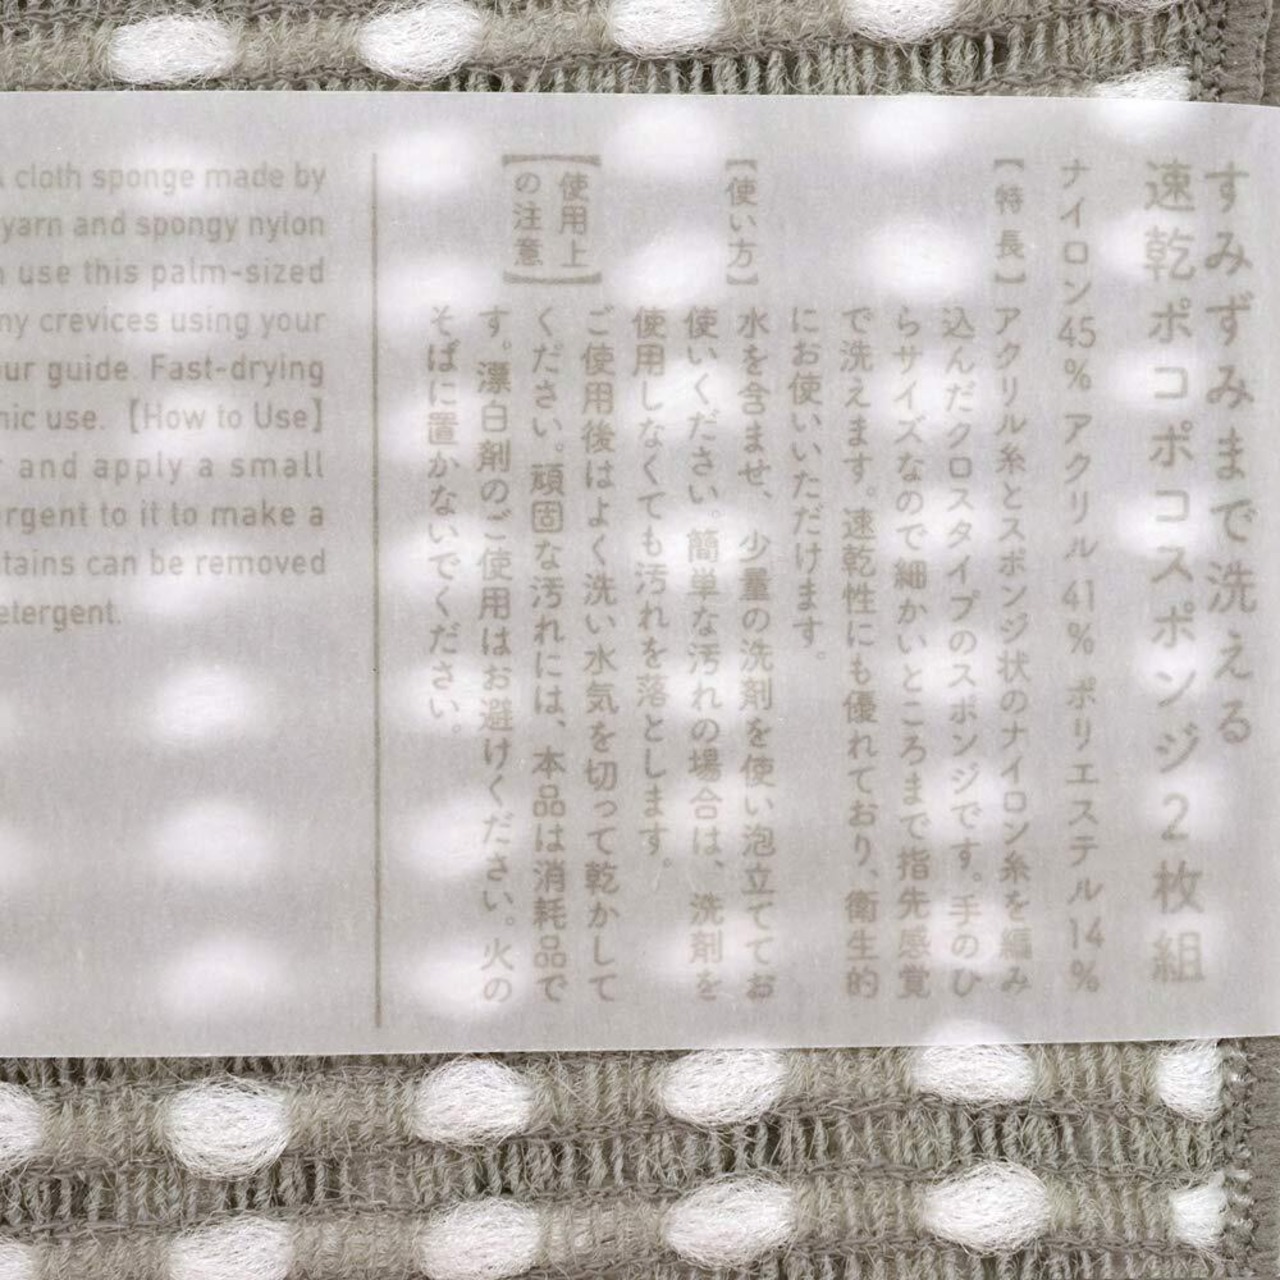 すみずみまで洗える
速乾ポコポコスポンジ2枚組
ナイロン45% アクリル41% ポリエステル14%
【特長】アクリル糸とスポンジ状のナイロン糸を編み
込んだクロスタイプのスポンジです。手のひ
らサイズなので細かいところまで指先感覚
で洗えます。速乾性にも優れており、衛生的
にお使いいただけます。
【使い方】水を含ませ、少量の洗剤を使い泡立ててお
使いください。簡単な汚れの場合は、洗剤を
使用しなくても汚れを落とします。
【使用上の注意】ご使用後はよく洗い水気を切って乾かして
ください。頑固な汚れには、本品は消耗品で
す。漂白剤のご使用はお避けください。火の
そばに置かないでください。
cloth sponge made by
yarn and spongy nylon
use this palm-sized
crevices using your
guide. Fast-drying
use. 【How to Use】
and apply a small
to it to make a
can be removed